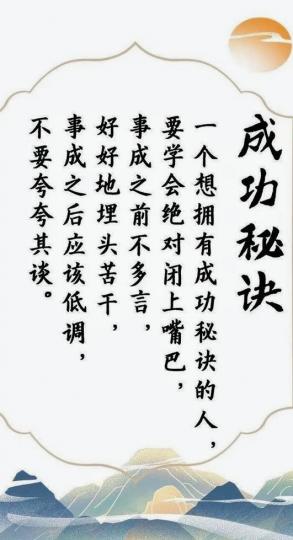 成功秘诀
一个想拥有成功秘诀的人，
要学会绝对闭上嘴巴，
事成之前不多言，
好好地埋头苦干，
事成之后应该低调，
不要夸夸其谈。